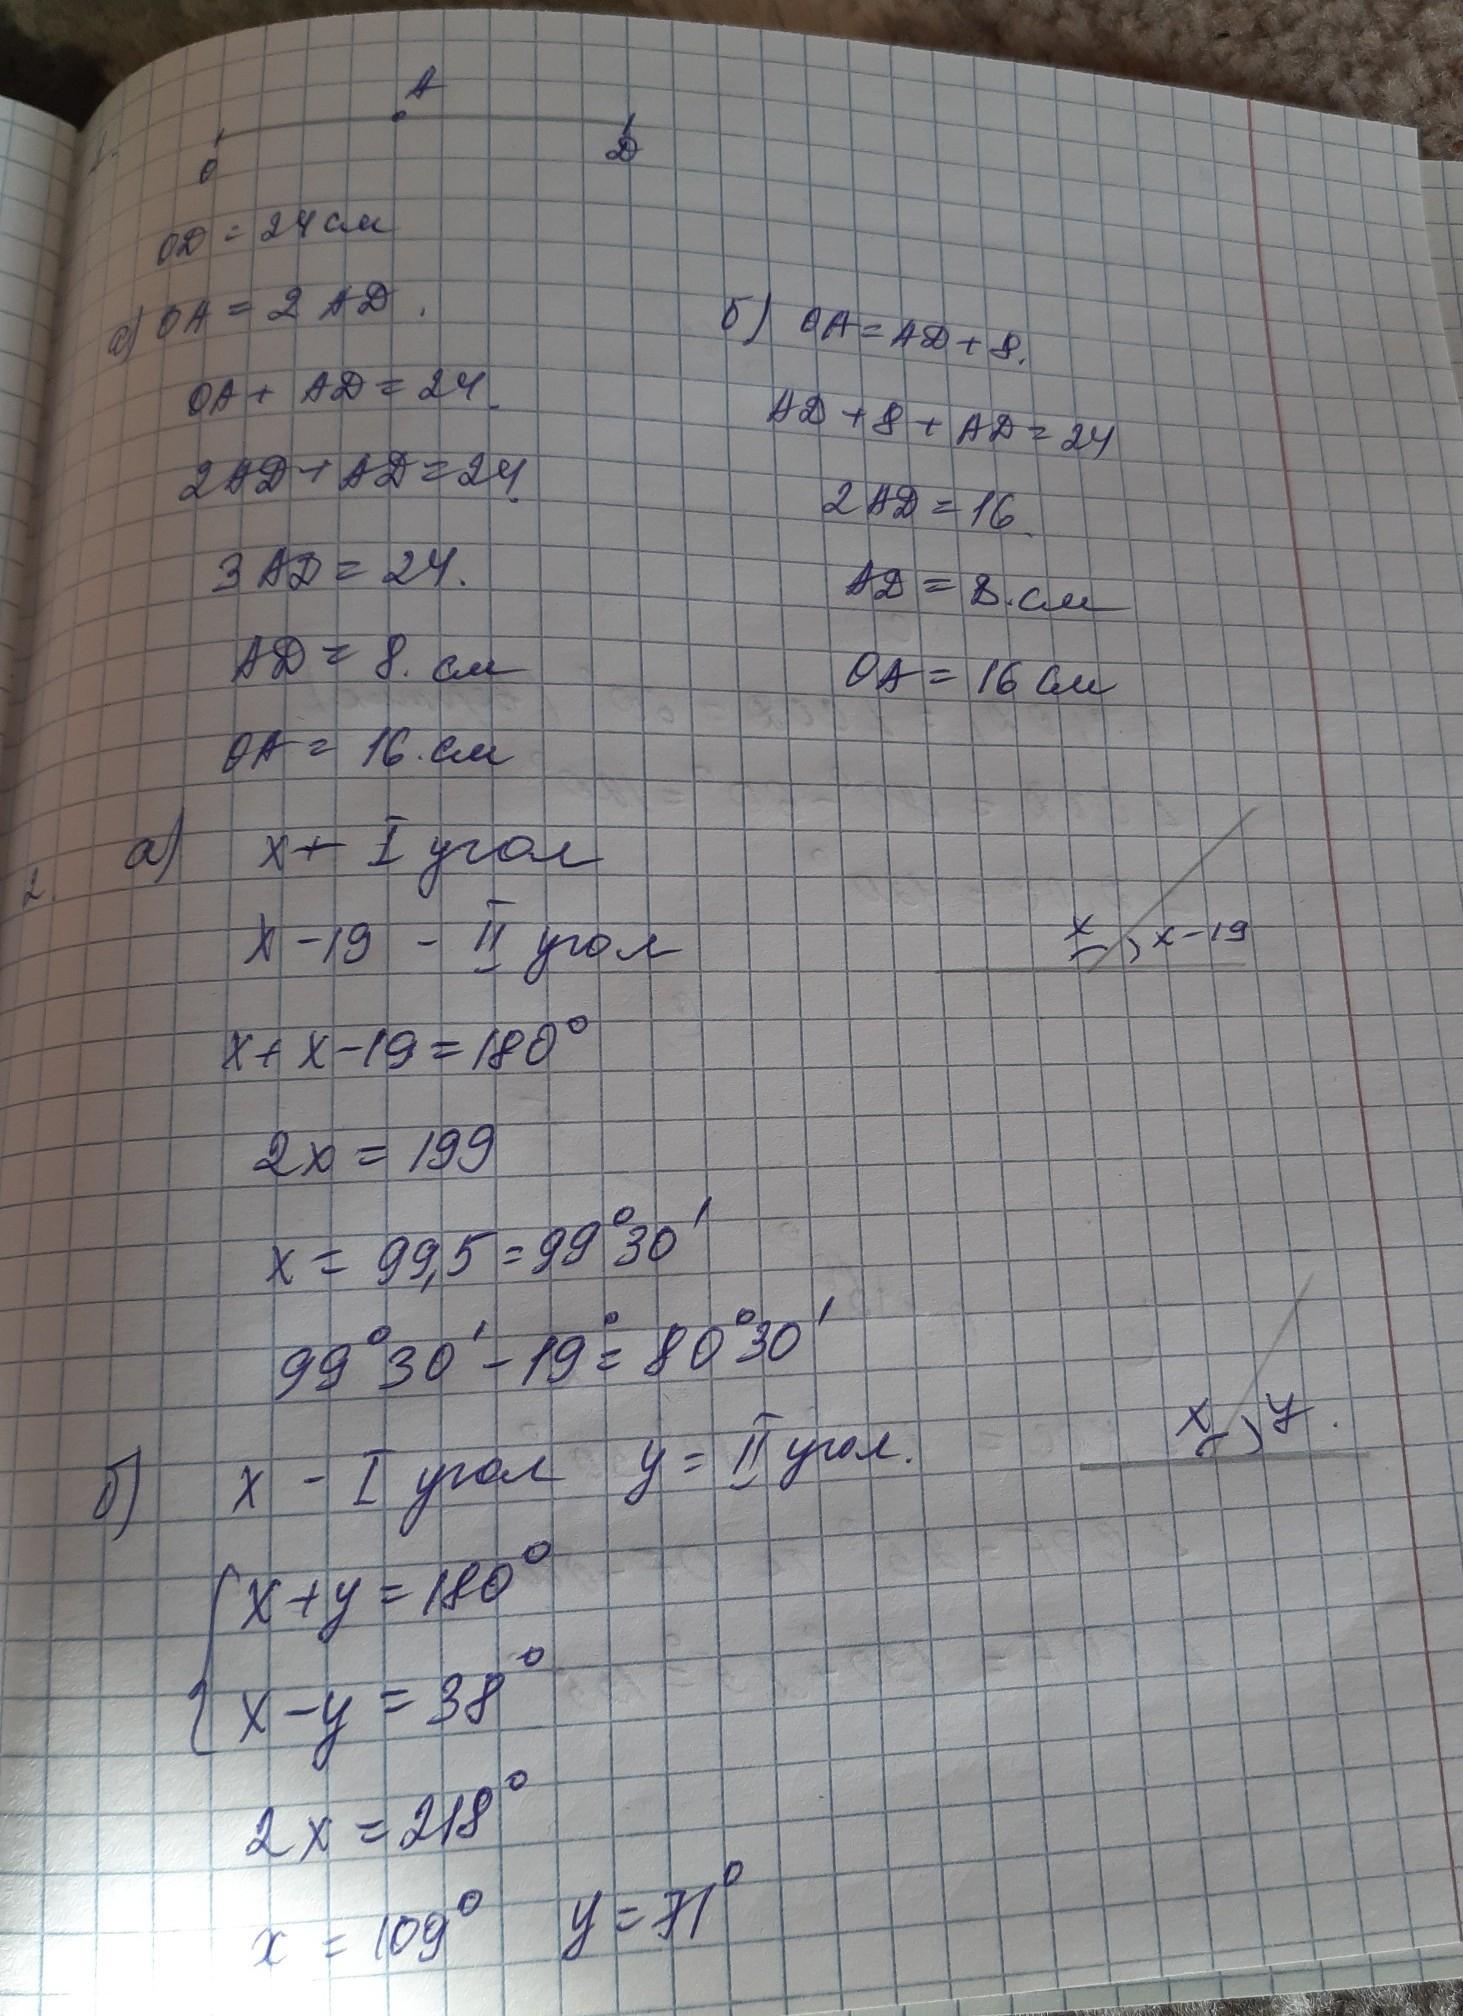 1.
A
O
D
OD = 24 см
а) OA = 2 AD.
OA + AD = 24.
2AD + AD = 24.
3 AD = 24.
AD = 8. см
OA = 16. см
б) OA = AD + 8.
AD + 8 + AD = 24
2 AD = 16.
AD = 8. см
OA = 16 см
2. а) x + I угол
x - 19 - II угол
x x - 19
x + x - 19 = 180°
2x = 199
x = 99,5 = 99°30'
99°30' - 19° = 80°30'
б) x - I угол y = II угол.
x y.
x + y = 180°
x - y = 38°
2x = 218°
x = 109° y = 71°